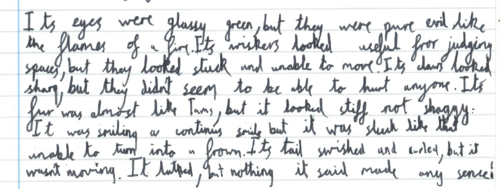 Its eyes were glassy green, but they were pure evil like
the flames of a fire. Its wiskers looked useful fror judging
spaces, but they looked stuck and unable to move. Its claws looked
sharp, but they didn't seem to be able to hurt anyone. Its
fur was almost like , but it looked stiff not shaggy.
It was smiling a continus smile but it was stuck like that
unable to turn into a frown. Its tail swished and curled, but it
wasn't moving. It talked, but nothing it said made any sense.